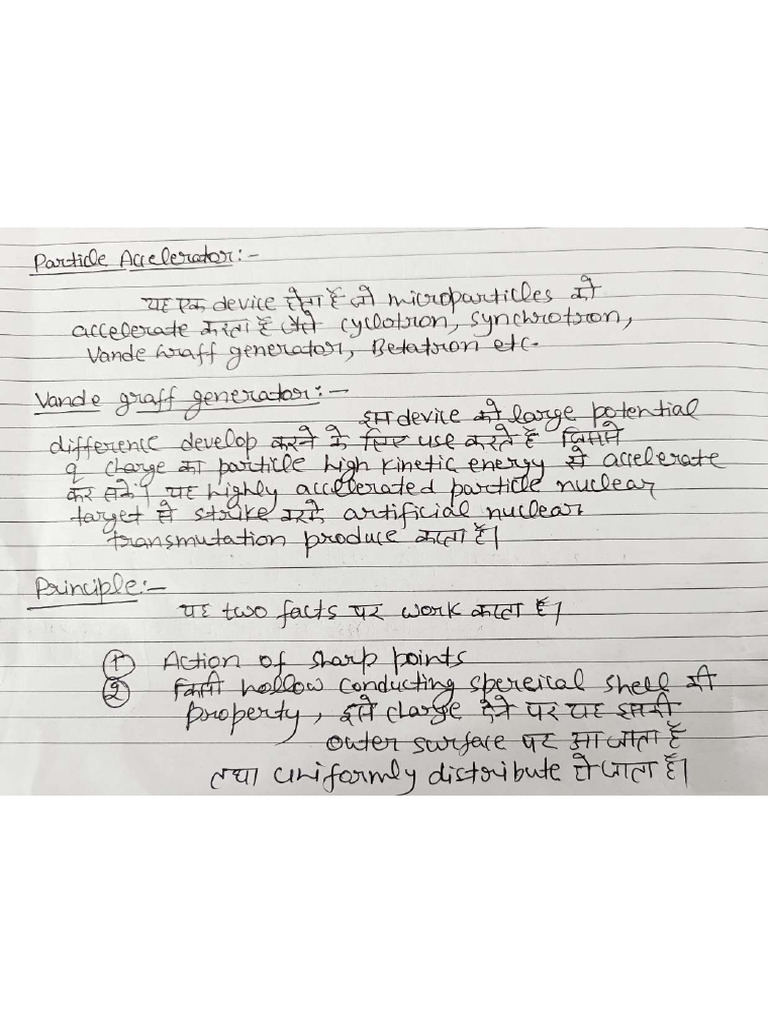 Particle Accelerator:-
यह एक device होता हैं जो microparticles को
accelerate करता हैं जैसे cyclotron, synchrotron,
Vande Graff generator, Betatron etc.
Vande graff generator:-
इस device को large potential
difference develop करने के लिए use करते हैं जिससे
q charge का particle high kinetic energy से accelerate
कर सके। यह highly accelerated particle nuclear
target से strike करके artificial nuclear
transmutation produce करता हैं।
Principle:-
यह two facts पर work करता हैं।
① Action of sharp points
② किसी hollow conducting spereical shell की
property, इसे charge देने पर यह इसकी
outer surface पर आ जाता हैं
तथा uniformly distribute हो जाता हैं।